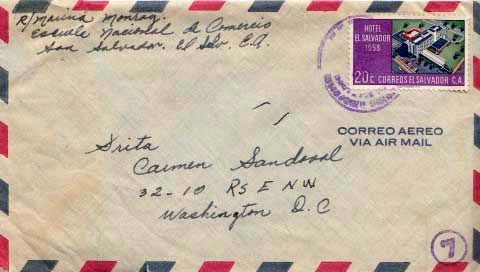 R/ Marina Monray.
Escuela Nacional de Comercio
San Salvador, El Salv. C.A.
HOTEL
EL SALVADOR
1958
20 C CORREOS EL SALVADOR C.A.
CORREO AEREO
VIA AIR MAIL
Srita
Carmen Sandoval
32-10 RS E N W
Washington D.C
7